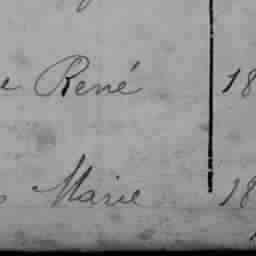 e René 18
s Marie 18